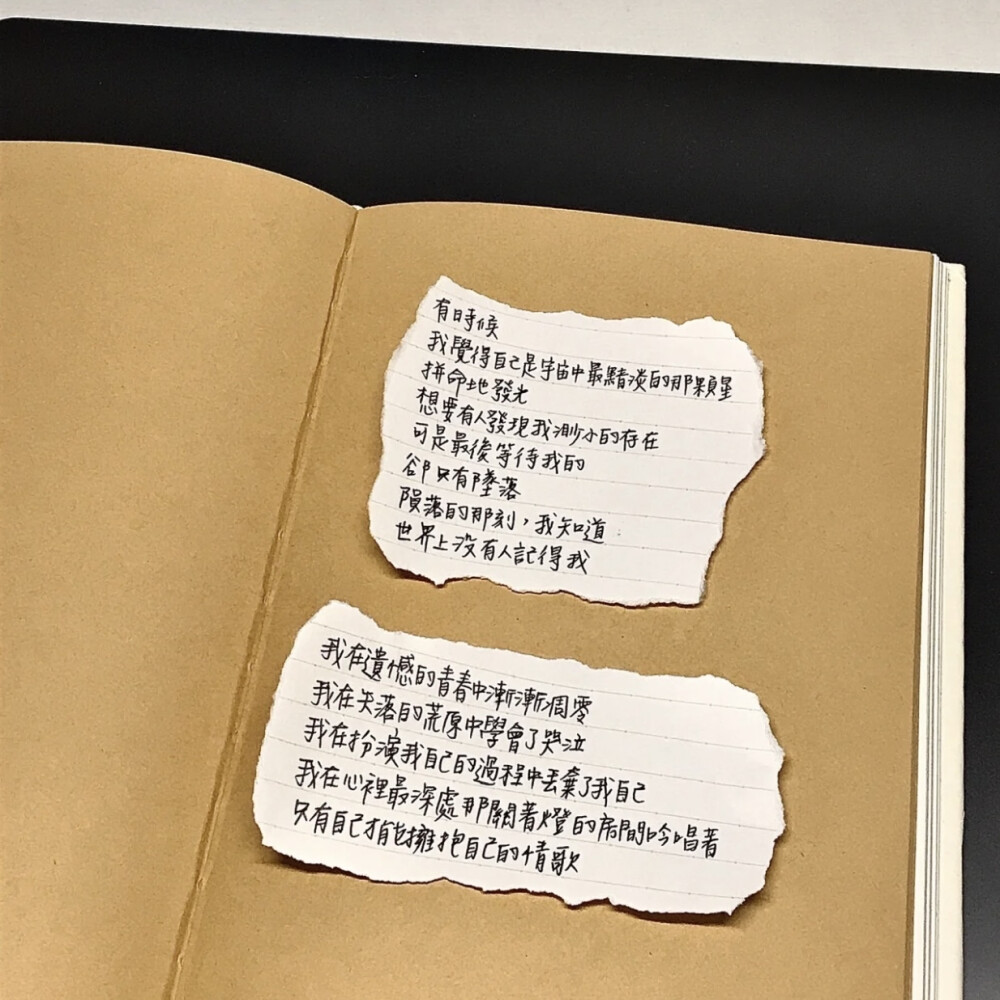 有時候
我覺得自己是宇宙中最黯淡的那顆星
拼命地發光
想要有人發現我渺小的存在
可是最後等待我的
卻只有墜落
隕落的那刻，我知道
世界上沒有人記得我
我在遺憾的青春中漸漸凋零
我在失落的荒原中學會了哭泣
我在扮演我自己的過程中丟棄了我自己
我在心裡最深處那關著燈的房間吟唱著
只有自己才能擁抱自己的情歌